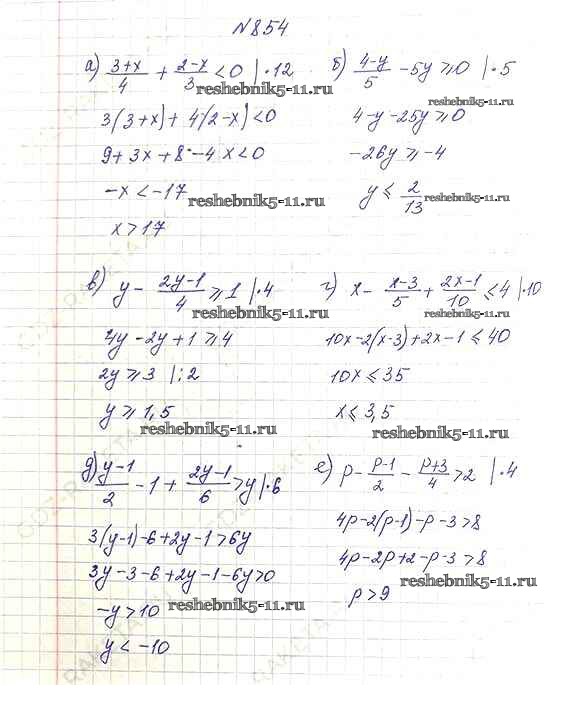 №854
а) (3+x)/4 + (2-x)/3 < 0 |·12
3(3+x) + 4(2-x) < 0
9 + 3x + 8 - 4x < 0
-x < -17
x > 17
б) (4-y)/5 - 5y ≥ 0 |·5
4-y-25y ≥ 0
-26y ≥ -4
y ≤ 2/13
в) y - (2y-1)/4 ≥ 1 |·4
4y - 2y + 1 ≥ 4
2y ≥ 3 |:2
y ≥ 1,5
г) x - (x-3)/5 + (2x-1)/10 ≤ 4 |·10
10x-2(x-3)+2x-1 ≤ 40
10x ≤ 35
x ≤ 3,5
д) (y-1)/2 - 1 + (2y-1)/6 > y |·6
3(y-1)-6+2y-1 > 6y
3y-3-6+2y-1-6y > 0
-y > 10
y < -10
е) p - (p-1)/2 - (p+3)/4 > 2 |·4
4p-2(p-1)-p-3 > 8
4p-2p+2-p-3 > 8
p > 9
reshebnik5-11.ru
reshebnik5-11.ru
reshebnik5-11.ru
reshebnik5-11.ru
reshebnik5-11.ru
reshebnik5-11.ru
reshebnik5-11.ru
reshebnik5-11.ru